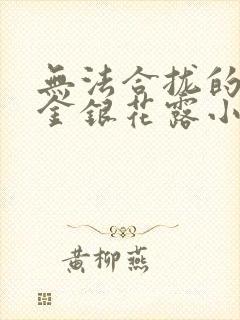 無法合拢的
金銀花露小
黄柳燕